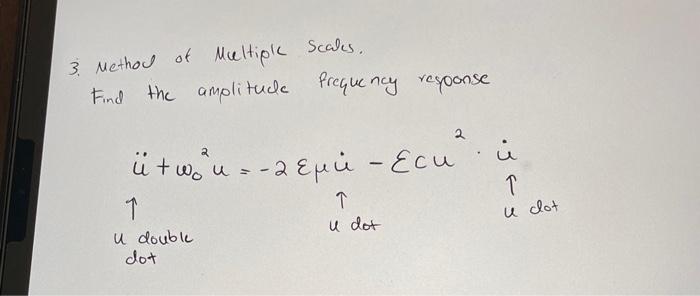 3. Method of Multiple Scales.
Find the amplitude frequency response
ü + ω₀² u = -2 εμu̇ - εcu² · u̇
↑ ↑ ↑
u double dot
u dot
u dot